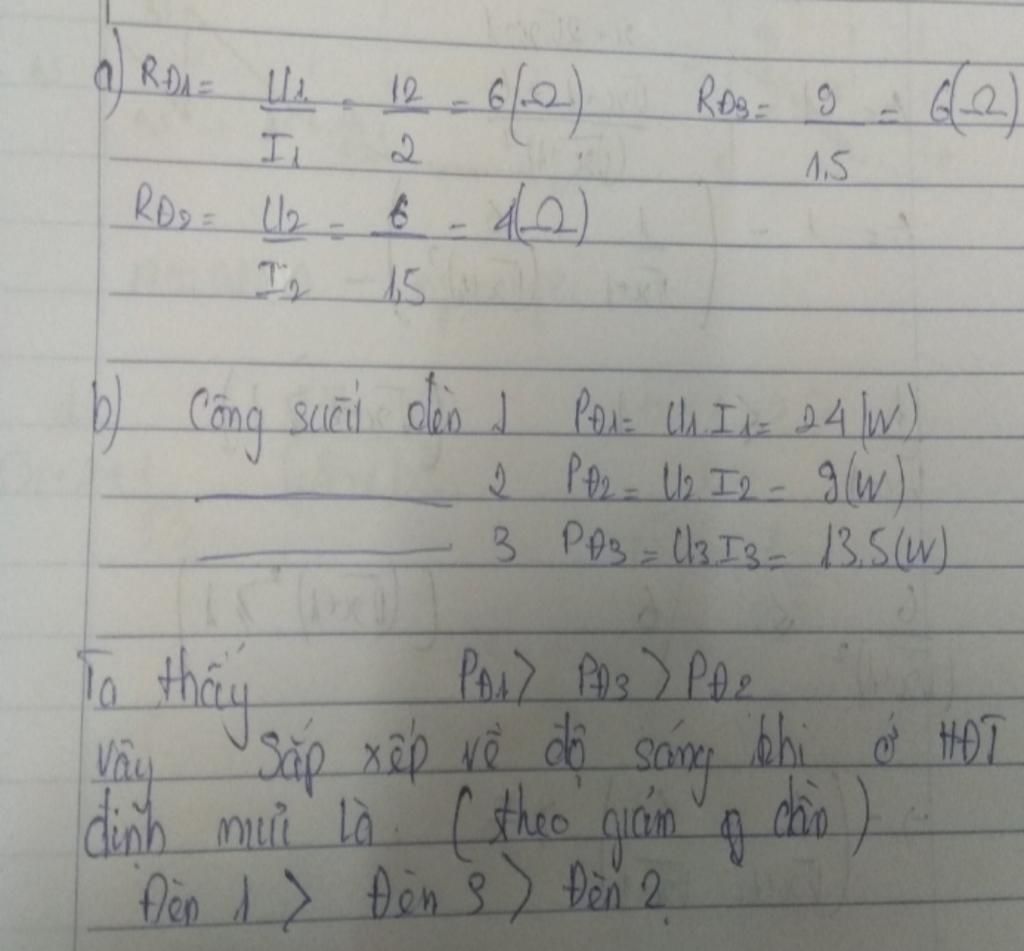 a) RĐ1 = U1/I1 = 12/2 = 6(Ω) RĐ3 = 9/1,5 = 6(Ω)
RĐ2 = U2/I2 = 6/1,5 = 4(Ω)
b) Công suất đèn 1 PĐ1 = U1.I1 = 24(W)
2 PĐ2 = U2 I2 = 9(W)
3 PĐ3 = U3.I3 = 13,5(W)
Ta thấy PĐ1 > PĐ3 > PĐ2
Vậy Sắp xếp về độ sáng khi ở HĐT
định mức là (theo giảm dần)
Đèn 1 > Đèn 3 > Đèn 2